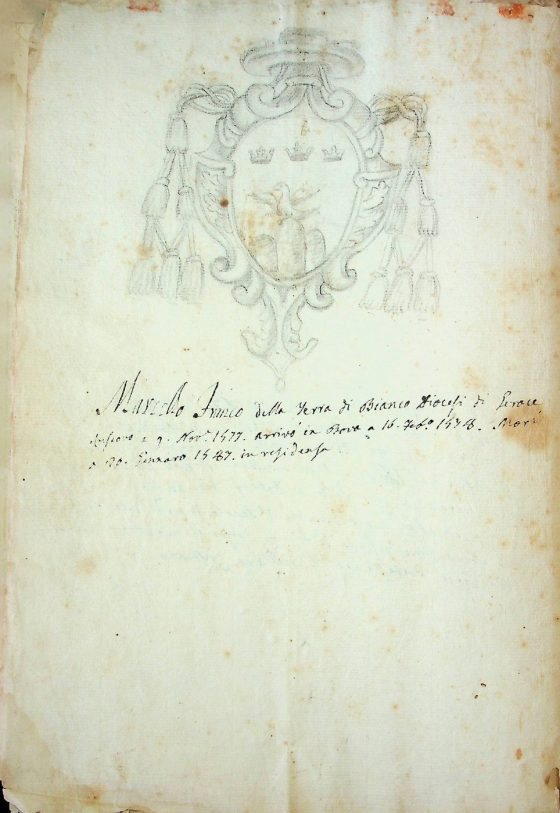 Marcello Franco della Terra di Bianco Diocesi di Gerace
Vescovo a 9. Nov.e 1577. arrivò in Bova a 16. Feb.o 1578. Morì
a 20. Gennaro 1587. in residenza